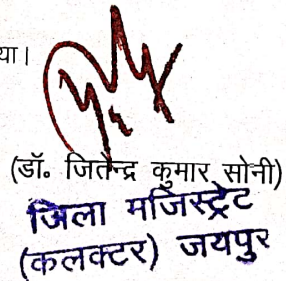 या।
(डॉ. जितेन्द्र कुमार सोनी)
जिला मजिस्ट्रेट
(कलक्टर) जयपुर